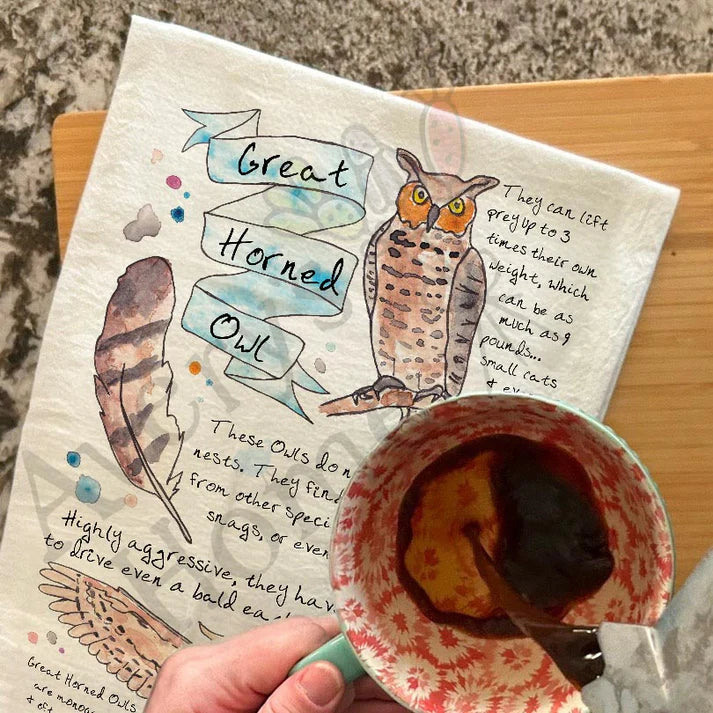 Great
Horned
Owl
They can lift
prey up to 3
times their own
weight, which
can be as
much as 9
pounds...
small cats
&
These Owls do
nests. They find
from other speci
snags, or even
Highly aggressive, they hav
to drive even a bald ea
Great Horned Owls
are monog
&